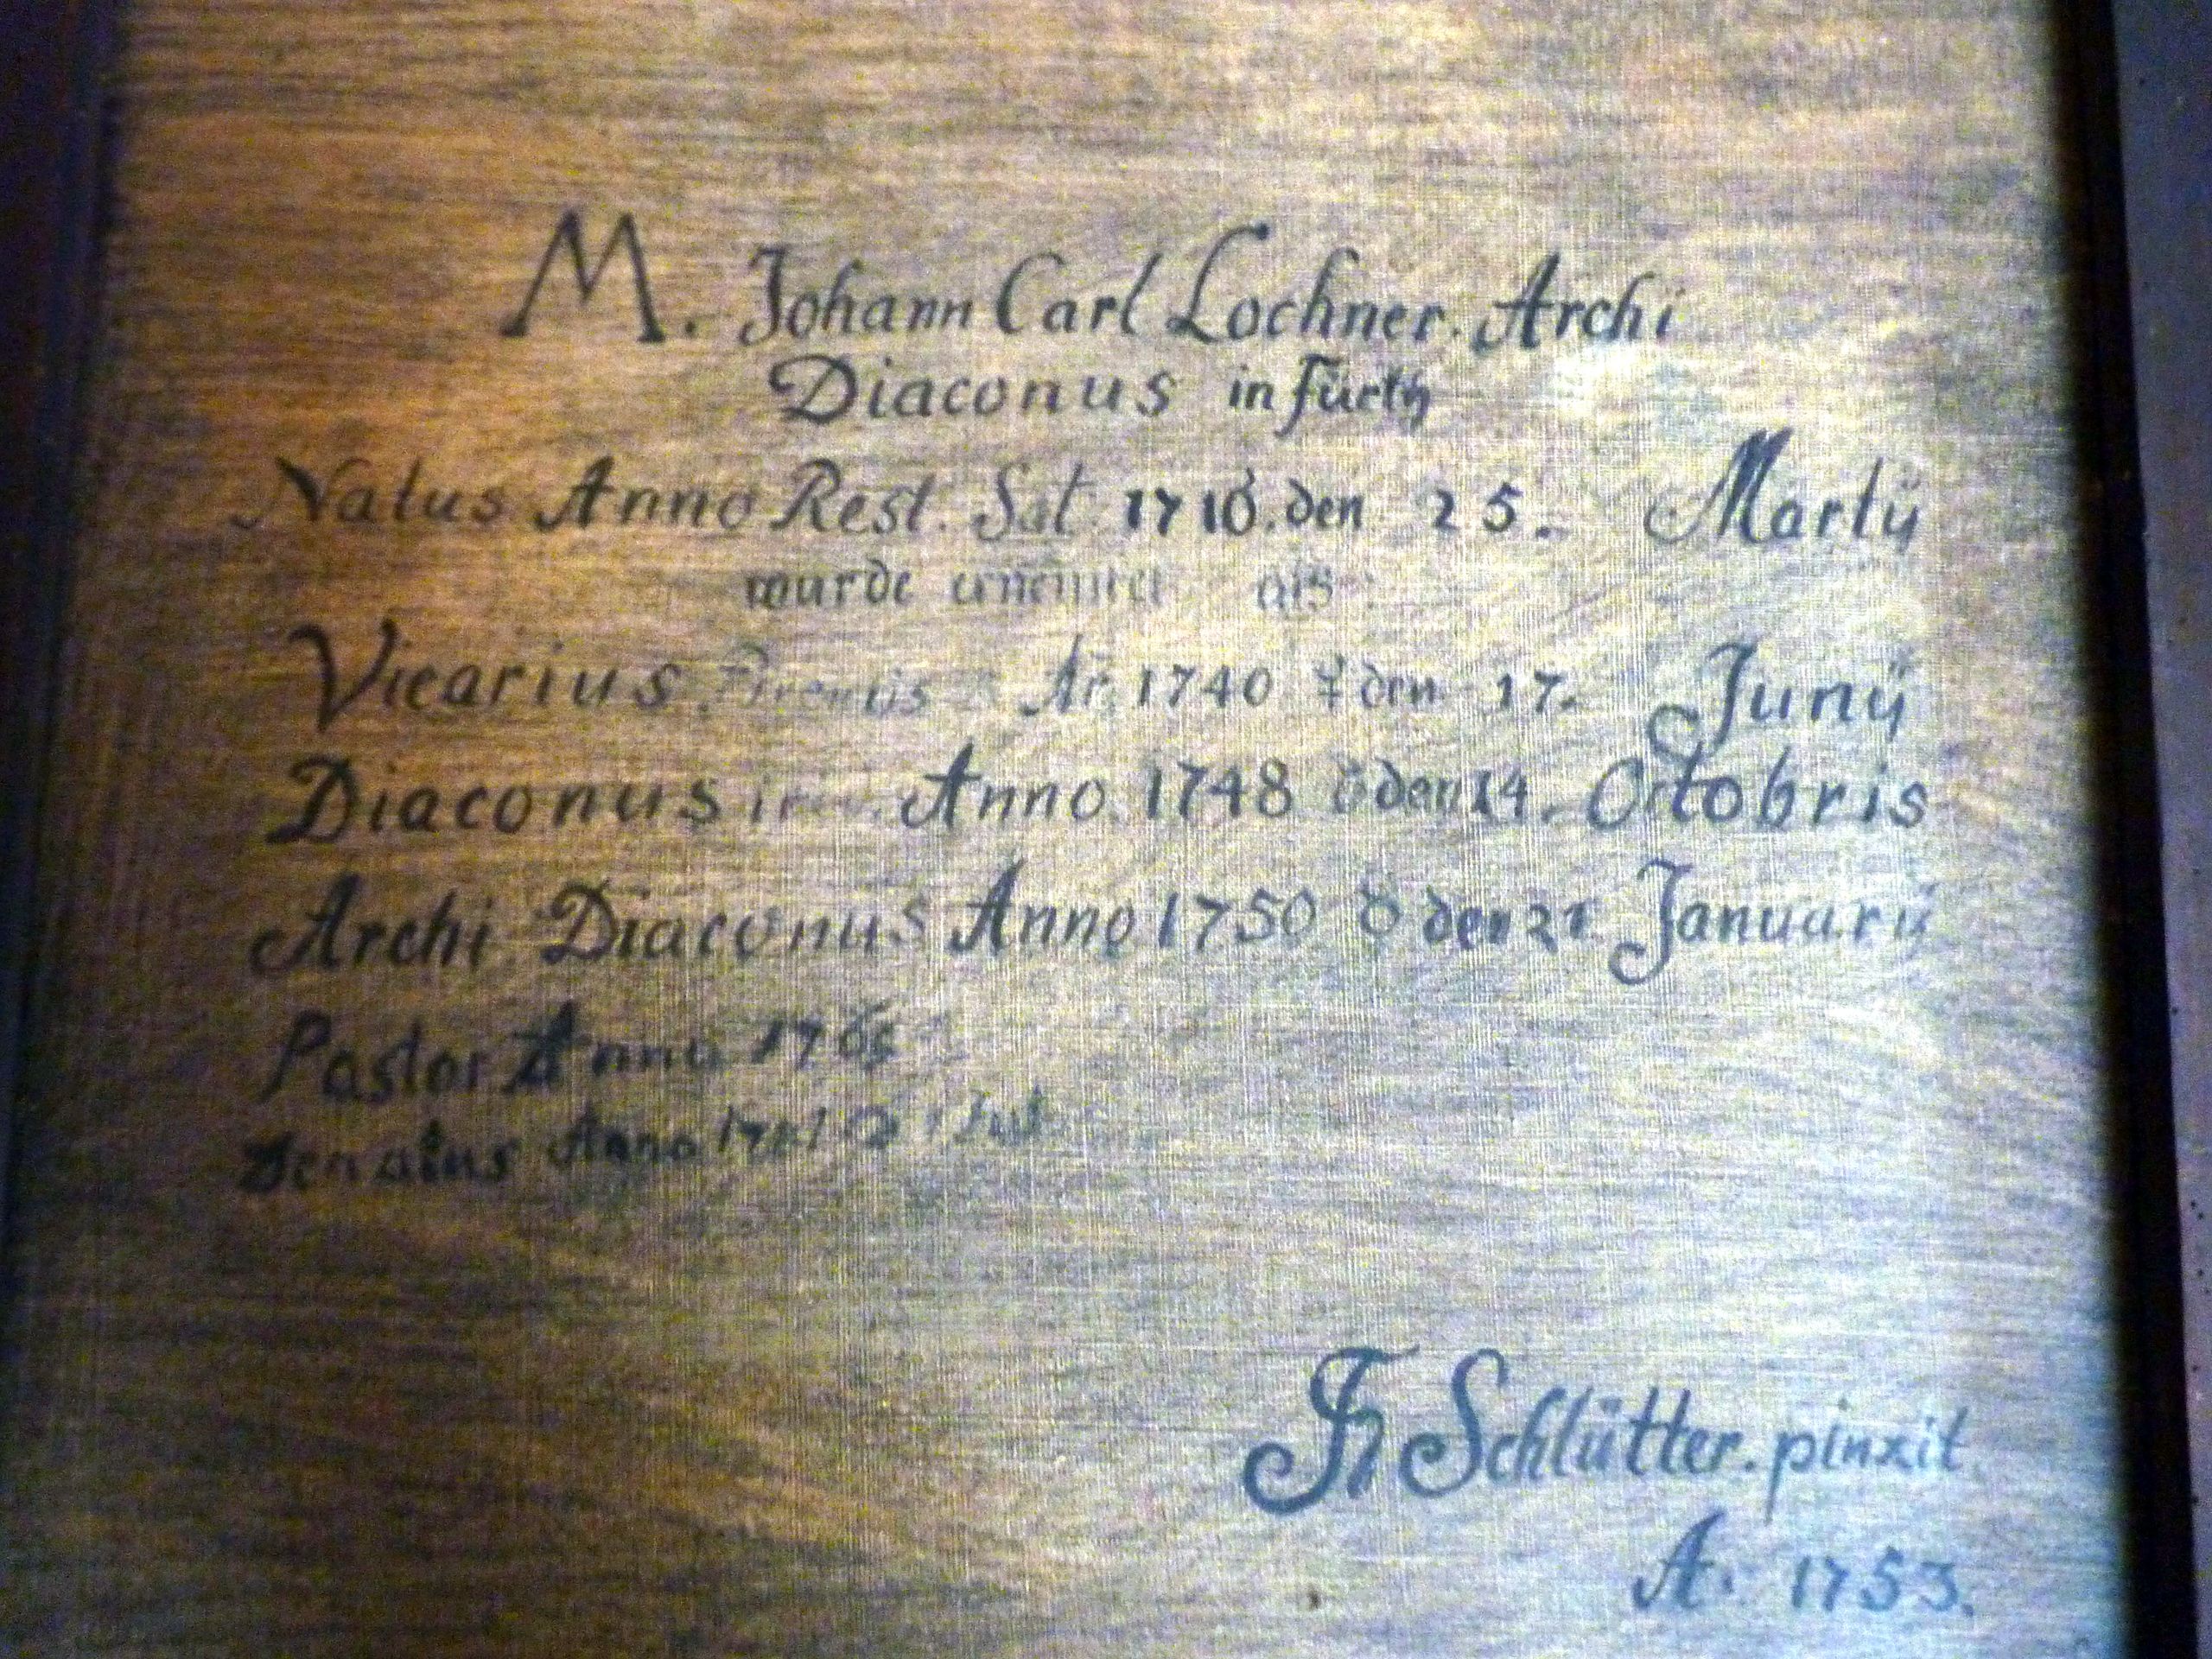 M. Johann Carl Lochner. Archi
Diaconus in Fürth
Natus Anno Rest. Sal. 1710. den 25. Martÿ
wurde als
Vicarius Ao. 1740 ☿ den 17. Junÿ
Diaconus Anno 1748 den 14. Octobris
Archi Diaconus Anno 1750 den 21. Januarÿ
Pastor Anno
Denatus Anno
Schlütter. pinxit.
A. 1753.